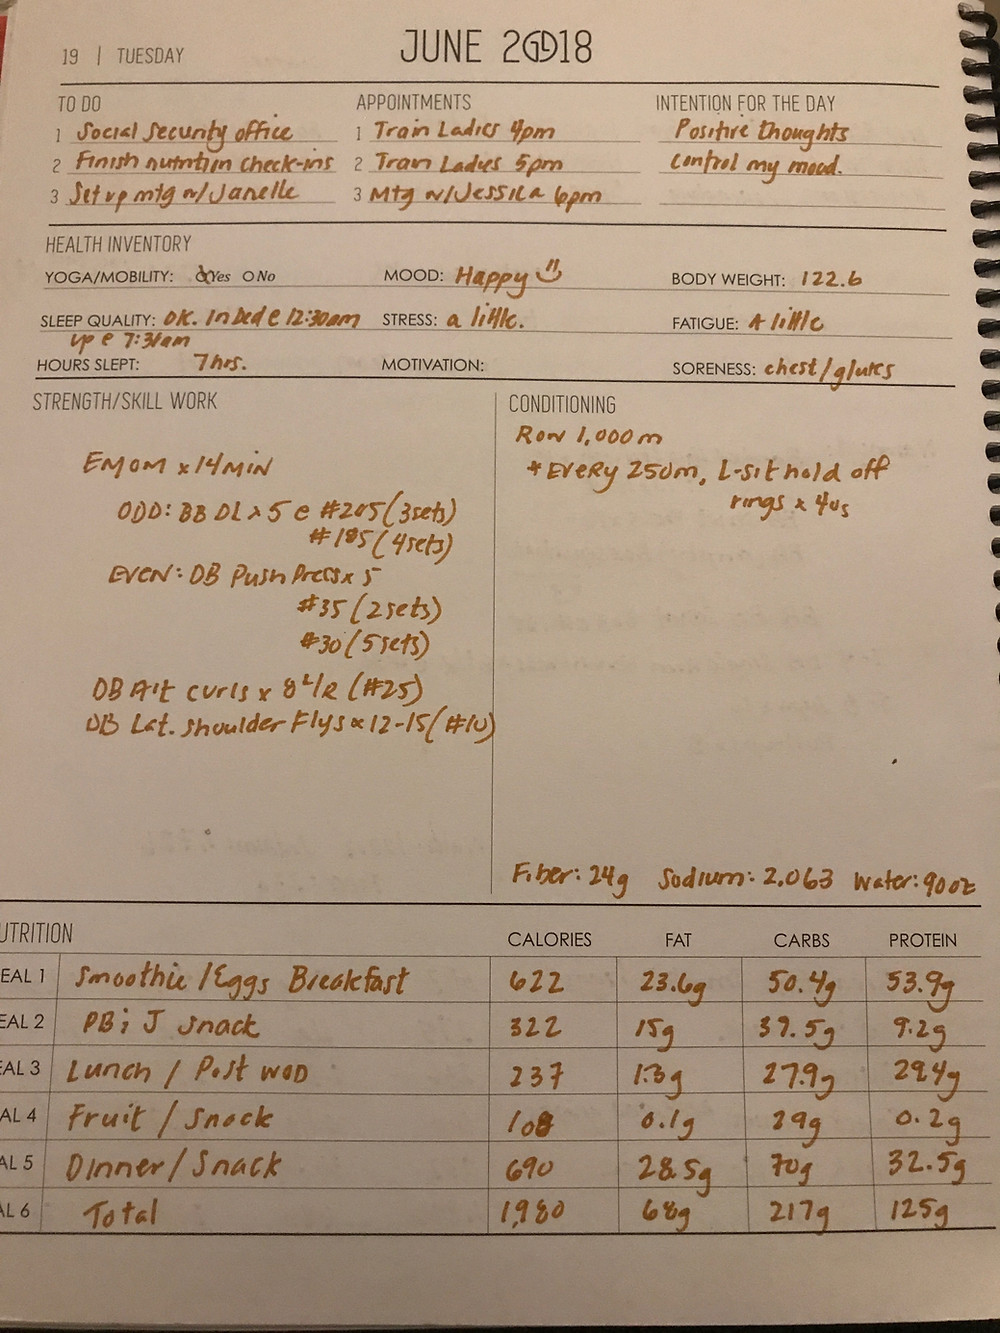 19 | TUESDAY
JUNE 2018
TO DO
1 Social Security office
2 Finish nutrition check-ins
3 Set up mtg w/Janelle
APPOINTMENTS
1 Train Ladies 4pm
2 Train Ladies 5pm
3 Mtg w/Jessica 6pm
INTENTION FOR THE DAY
Positive thoughts
control my mood.
HEALTH INVENTORY
YOGA/MOBILITY: Yes O No
MOOD: Happy
BODY WEIGHT: 122.6
SLEEP QUALITY: OK. In bed @ 12:30am
up @ 7:31am
STRESS: a little.
FATIGUE: A little
HOURS SLEPT: 7hrs.
MOTIVATION:
SORENESS: chest/glutes
STRENGTH/SKILL WORK
EMOM x 14 MIN
ODD: BB DL x 5 @ #205 (3sets)
#185 (4sets)
EVEN: DB Push Press x 5
#35 (2sets)
#30 (5sets)
DB Alt curls x 8 L/R (#25)
DB Lat. Shoulder Flys x 12-15 (#10)
CONDITIONING
Row 1,000m
*Every 250m, L-sit hold off
rings x 40s
Fiber: 24g Sodium: 2,063 Water: 90oz
UTRITION CALORIES FAT CARBS PROTEIN
EAL 1 Smoothie/Eggs Breakfast 622 23.6g 50.4g 53.9g
EAL 2 PB & J Snack 322 15g 39.5g 9.2g
EAL 3 Lunch / Post WOD 237 1.3g 27.9g 29.4g
AL 4 Fruit / Snack 108 0.1g 29g 0.2g
AL 5 Dinner/Snack 690 28.5g 70g 32.5g
AL 6 Total 1,980 68g 217g 125g